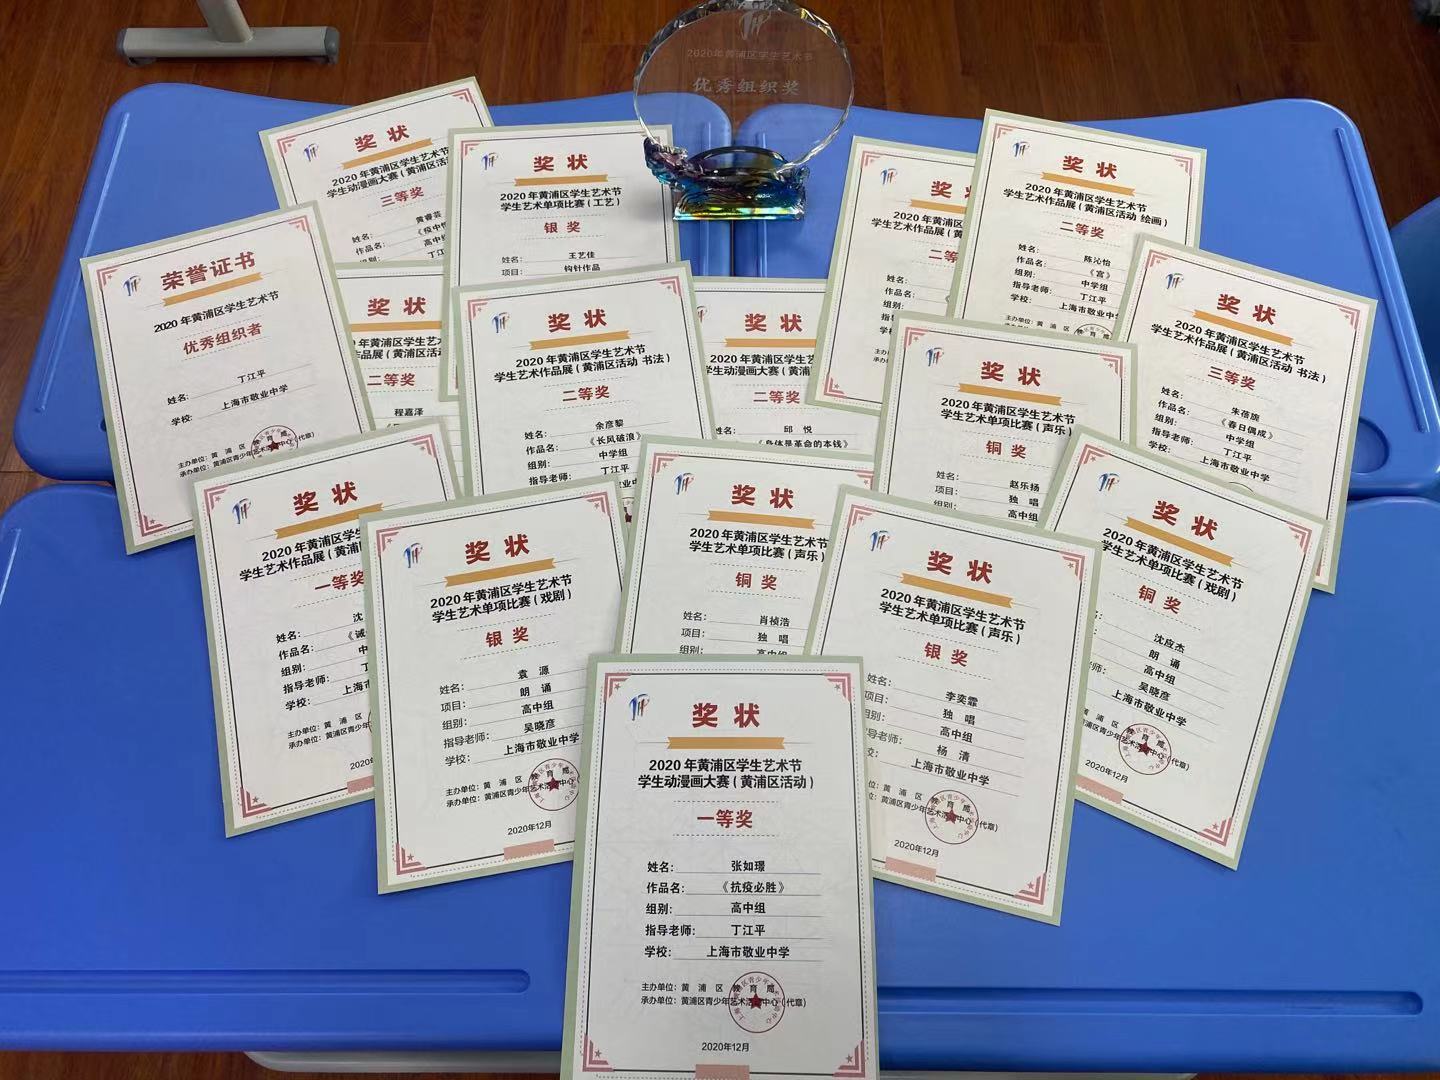 2020年黄浦区学生艺术节
优秀组织奖
奖 状
2020 年黄浦区学生艺术节
学生动漫画大赛(黄浦区活
三等奖
姓名: 黄睿芸
作品名: 《疫中
组别: 高中组
丁江
奖 状
2020 年黄浦区学生艺术节
学生艺术单项比赛(工艺)
银 奖
姓名: 王艺佳
项目: 钩针作品
奖
2020 年黄浦区学生
学生艺术作品展(黄
二等
姓名:
作品名:
组别:
指导老师:
学校:
主办单位:
承办
奖 状
2020 年黄浦区学生艺术节
学生艺术作品展(黄浦区活动 绘画)
二等奖
姓名: 陈沁怡
作品名: 《宫》
组别: 中学组
指导老师: 丁江平
学校: 上海市敬业中学
主办单位: 黄 浦 区
荣誉证书
2020 年黄浦区学生艺术节
优秀组织者
姓名: 丁江平
学校: 上海市敬业中学
主办单位: 黄 浦 区 教 育 局
承办单位: 黄浦区青少年艺术活动中心(代章)
奖 状
年黄浦区学生艺术节
作品展(黄浦区活动
二等奖
程嘉泽
奖 状
2020 年黄浦区学生艺术节
学生艺术作品展(黄浦区活动 书法)
二等奖
姓名: 余彦黎
作品名: 《长风破浪》
组别: 中学组
指导老师: 丁江平
奖 状
2020 年黄浦区学生艺
学生动漫画大赛(黄浦
二等奖
邱 悦
《身体是革命的本钱》
奖 状
2020 年黄浦区学生艺术节
学生艺术单项比赛(声乐)
铜 奖
姓名: 赵乐扬
项目: 独 唱
组别: 高中组
奖 状
2020 年黄浦区学生艺术节
学生艺术作品展(黄浦区活动 书法)
三等奖
姓名: 朱蓓旎
作品名: 《春日偶成》
组别: 中学组
指导老师: 丁江平
学校: 上海市敬业中学
奖 状
2020 年黄浦区学生
学生艺术作品展(黄浦
一等奖
姓名: 沈
作品名: 《诫
组别: 中
指导老师: 丁
学校: 上海市
主办单位: 黄 浦 区
承办单位: 黄浦区青少年
2020
奖 状
2020 年黄浦区学生艺术节
学生艺术单项比赛(戏剧)
银 奖
姓名: 袁 源
项目: 朗 诵
组别: 高中组
指导老师: 吴晓彦
学校: 上海市敬业中学
主办单位: 黄 浦 区 教 育 局
承办单位: 黄浦区青少年艺术活动中心(代章)
2020年12月
奖 状
2020 年黄浦区学生艺术节
学生艺术单项比赛(声乐)
铜 奖
姓名: 肖桢浩
项目: 独 唱
组别: 高中组
奖 状
2020 年黄浦区学生艺术节
学生艺术单项比赛(声乐)
银 奖
姓名: 李奕霏
项目: 独 唱
组别: 高中组
指导老师: 杨 清
学校: 上海市敬业中学
位: 黄 浦 区 教 育 局
位: 黄浦区青少年艺术活动中心(代章)
2020年12月
奖 状
2020 年黄浦区学生艺术节
学生艺术单项比赛(戏剧)
铜 奖
沈应杰
朗 诵
高中组
老师: 吴晓彦
上海市敬业中学
黄 浦 区 教 育 局
黄浦区青少年艺术活动中心(代章)
2020年12月
奖 状
2020 年黄浦区学生艺术节
学生动漫画大赛(黄浦区活动)
一等奖
姓名: 张如璟
作品名: 《抗疫必胜》
组别: 高中组
指导老师: 丁江平
学校: 上海市敬业中学
主办单位: 黄 浦 区 教 育 局
承办单位: 黄浦区青少年艺术活动中心(代章)
2020年12月